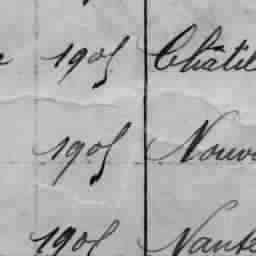 1905 Châtil
1905 Nouv
1905 Nant